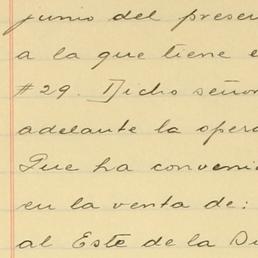 junio del presen
a la que tiene e
#29. Dicho señor
adelante la opera
Que ha convenid
en la venta de:
al Este de la Di